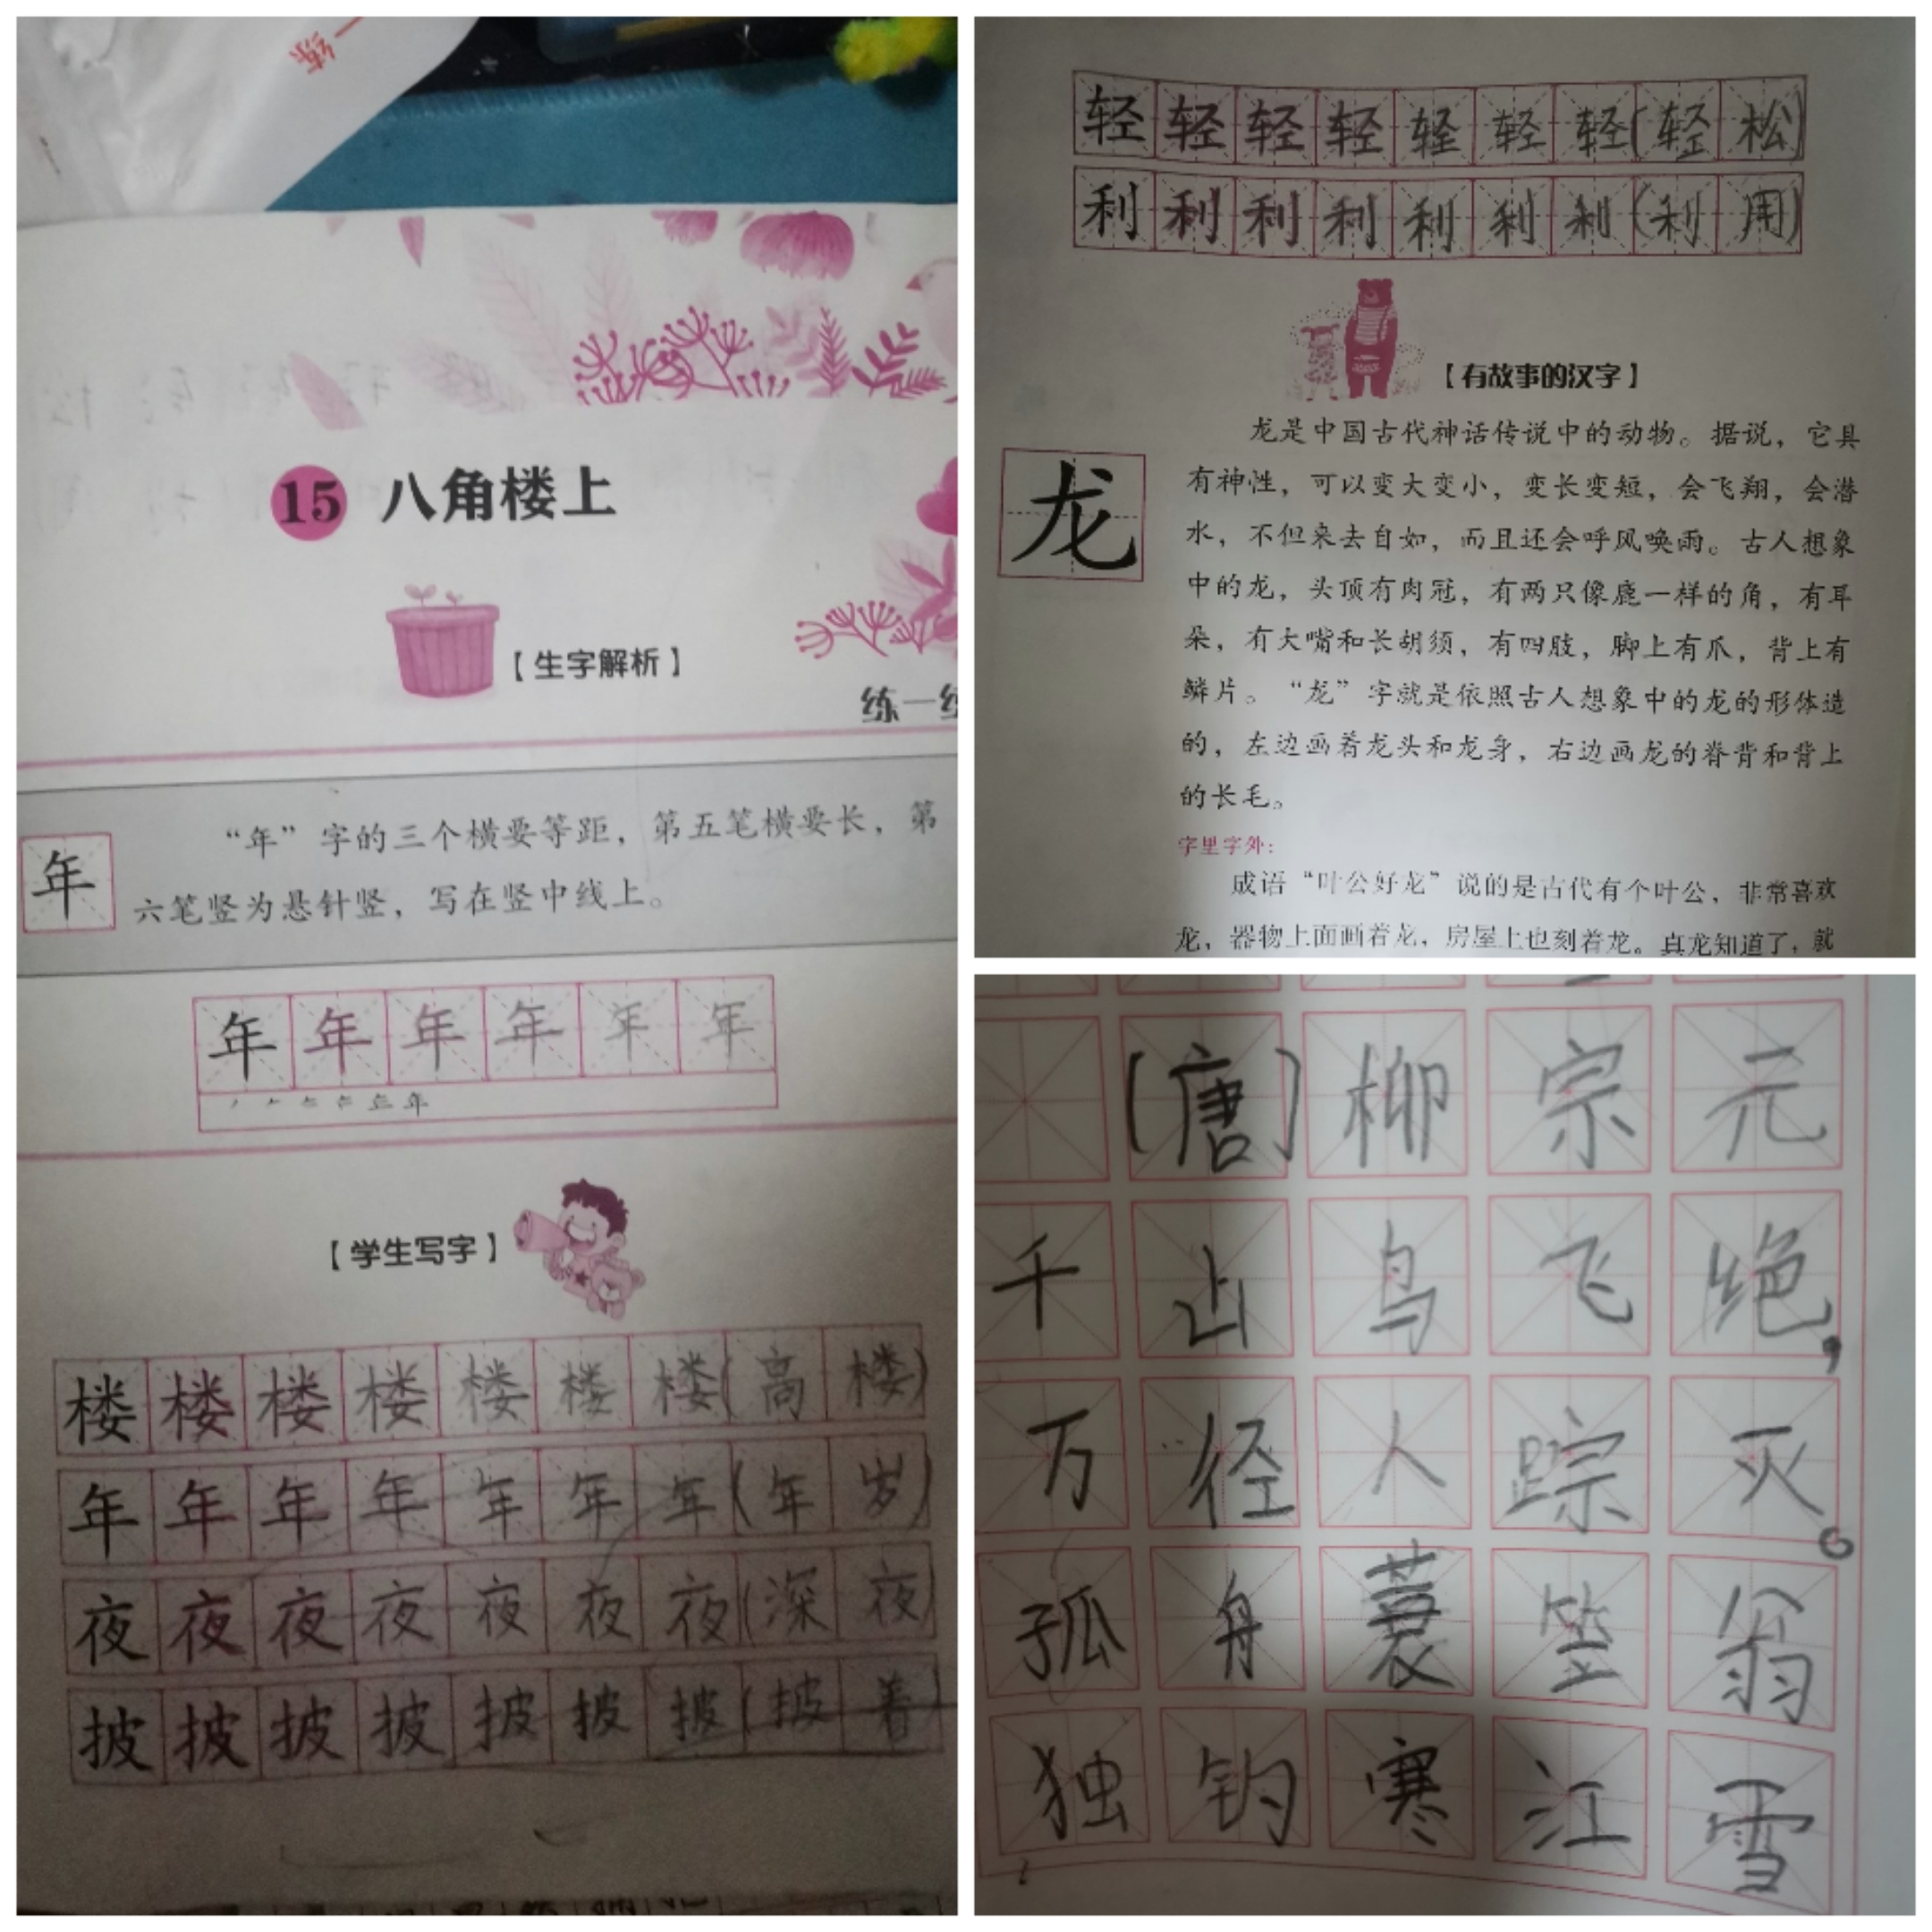 15 八角楼上
【生字解析】
练一
“年”字的三个横要等距，第五笔横要长，第
年
六笔竖为悬针竖，写在竖中线上。
年年年年年年
【学生写字】
楼楼楼楼楼楼楼(高楼)
年年年年年年年(年岁)
夜夜夜夜夜夜夜(深夜)
披披披披披披披(披着)
轻轻轻轻轻轻轻(轻松)
利利利利利利利(利用)
【有故事的汉字】
龙
龙是中国古代神话传说中的动物。据说，它具
有神性，可以变大变小，变长变短，会飞翔，会潜
水，不但来去自如，而且还会呼风唤雨。古人想象
中的龙，头顶有肉冠，有两只像鹿一样的角，有耳
朵，有大嘴和长胡须，有四肢，脚上有爪，背上有
鳞片。“龙”字就是依照古人想象中的龙的形体造
的，左边画着龙头和龙身，右边画龙的脊背和背上
的长毛。
字里字外：
成语“叶公好龙”说的是古代有个叶公，非常喜欢
龙，器物上面画着龙，房屋上也刻着龙。真龙知道了，就
(唐)柳宗元
千山鸟飞绝，
万径人踪灭。
孤舟蓑笠翁
独钓寒江雪